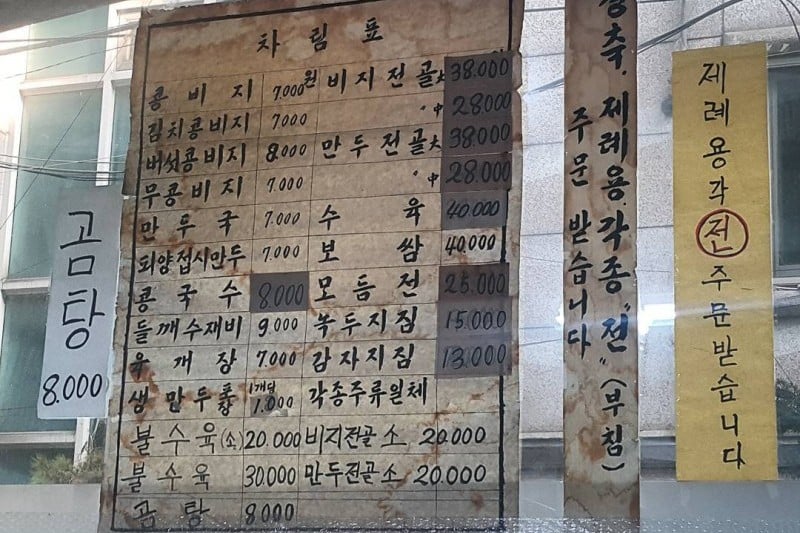 차림표
콩비지 7.000원 비지전골大 38.000
김치콩비지 7.000 〃 中 28.000
버섯콩비지 8.000 만두전골大 38.000
무콩비지 7.000 〃 中 28.000
만두국 7.000 수육 40.000
되양접시만두 7.000 보쌈 40.000
콩국수 8.000 모듬전 25.000
들깨수재비 9.000 녹두지짐 15.000
육개장 7.000 감자지짐 13.000
생만두 포장 1개당 1.000 각종주류일체
불수육(소) 20.000 비지전골소 20.000
불수육 30.000 만두전골소 20.000
곰탕 8.000
곰탕
8.000
경축, 제례용, 각종 "전" (부침)
주문 받습니다
제례용각전주문받습니다